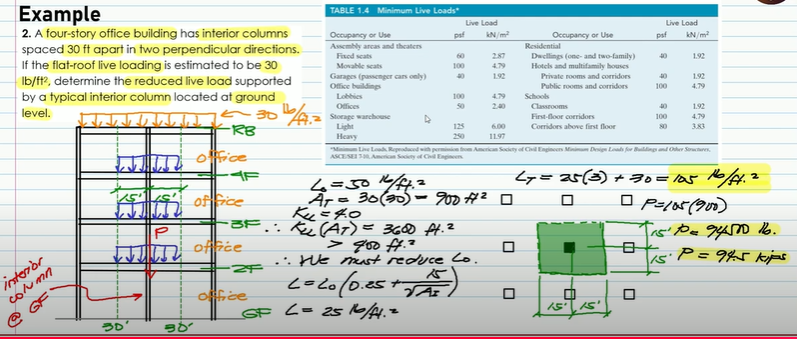 Example
2. A four-story office building has interior columns
spaced 30 ft apart in two perpendicular directions.
If the flat-roof live loading is estimated to be 30
lb/ft², determine the reduced live load supported
by a typical interior column located at ground
level.
TABLE 1.4 Minimum Live Loads*
Live Load Live Load
Occupancy or Use psf kN/m² Occupancy or Use psf kN/m²
Assembly areas and theaters Residential
Fixed seats 60 2.87 Dwellings (one- and two-family) 40 1.92
Movable seats 100 4.79 Hotels and multifamily houses
Garages (passenger cars only) 40 1.92 Private rooms and corridors 40 1.92
Office buildings Public rooms and corridors 100 4.79
Lobbies 100 4.79 Schools
Offices 50 2.40 Classrooms 40 1.92
Storage warehouse First-floor corridors 100 4.79
Light 125 6.00 Corridors above first floor 80 3.83
Heavy 250 11.97
*Minimum Live Loads, Reproduced with permission from American Society of Civil Engineers Minimum Design Loads for Buildings and Other Structures,
ASCE/SEI 7-10, American Society of Civil Engineers.
30 lb/ft.²
RB
office
4F
15' 15'
office
3F
P
office
2F
office
GF
interior
column
@ GF
30' 30'
L₀ = 50 lb/ft.²
A_T = 30(30) = 900 ft²
K_LL = 4.0
∴ K_LL(A_T) = 3600 ft.²
> 400 ft.²
∴ We must reduce L₀.
L = L₀(0.25 + 15/√A_I)
L = 25 lb/ft.²
L_T = 25(3) + 30 = 105 lb/ft.²
P = 105(900)
P = 94500 lb.
P = 94.5 kips
15'
15'
15' 15'